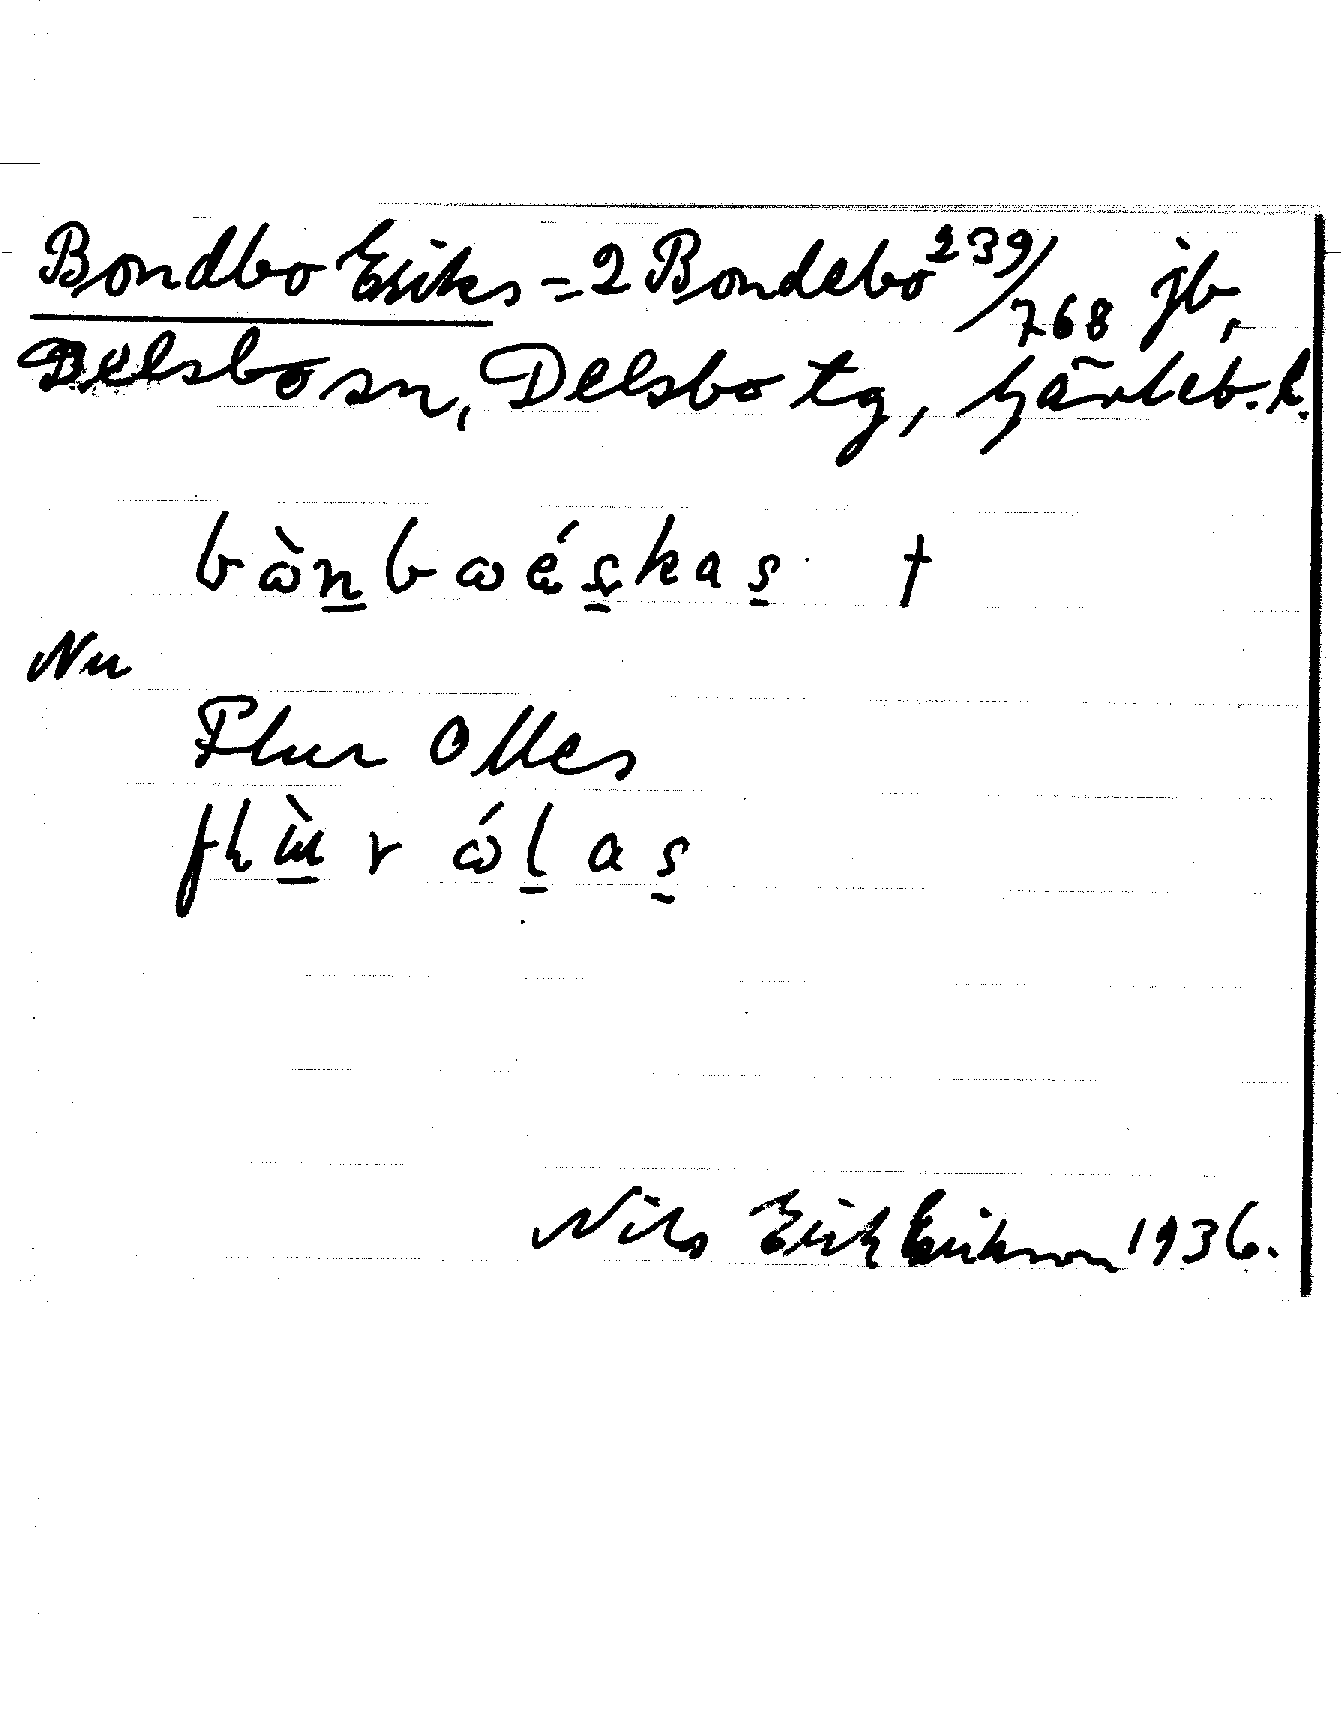 Bondbo Eriks = 2 Bondebo 239/768 jb,
Delsbo sn, Delsbo tg, Gävleb. l.
bὼn̲bωés̲kas̲ †
Nu
Flur Olles
flὼr ώl̲as̲
Nils Erik Erikson 1936.